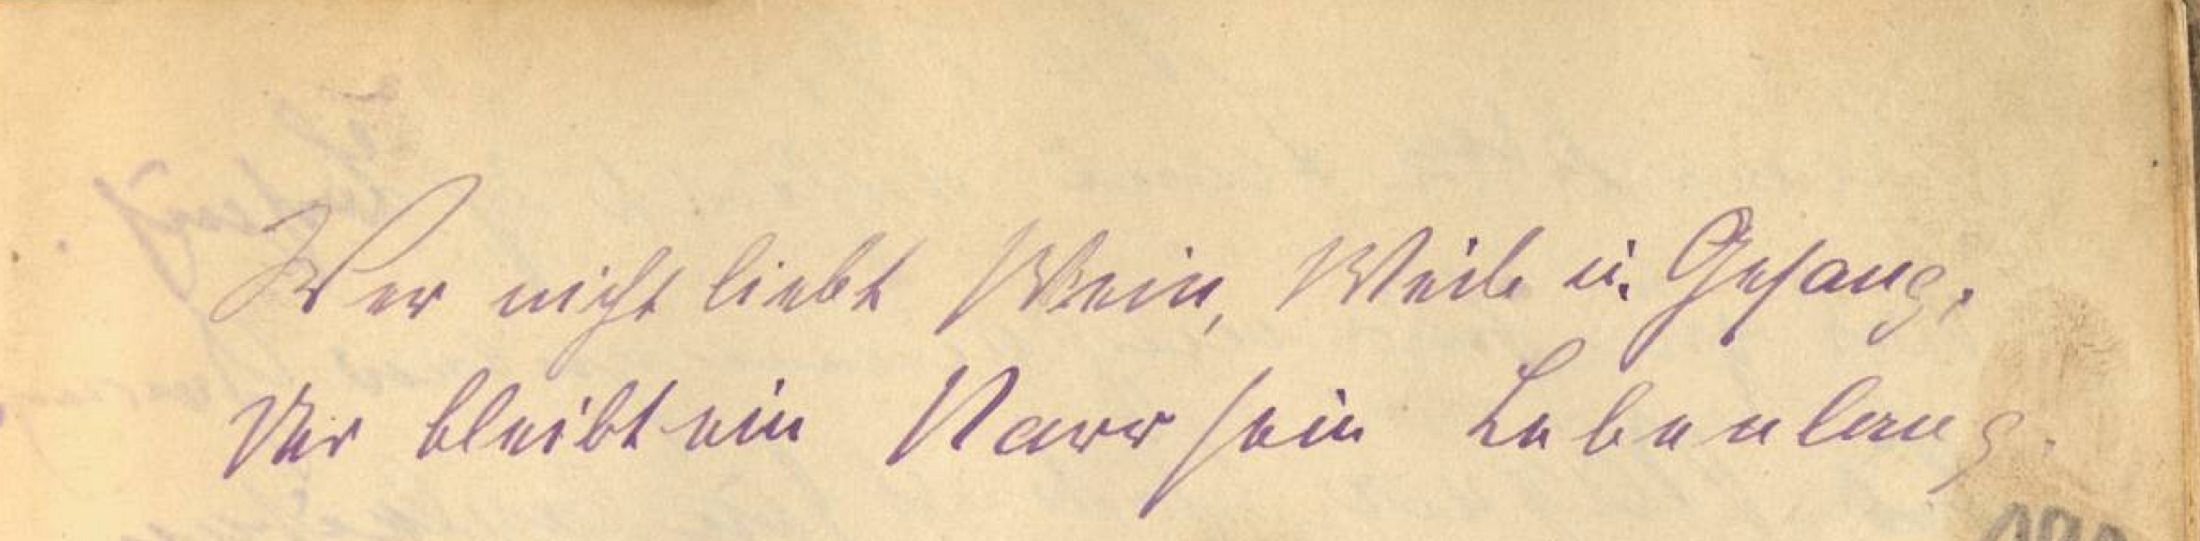 Wer nicht liebt Wein, Weib u. Gesang,
Der bleibt ein Narr sein Lebenlang.